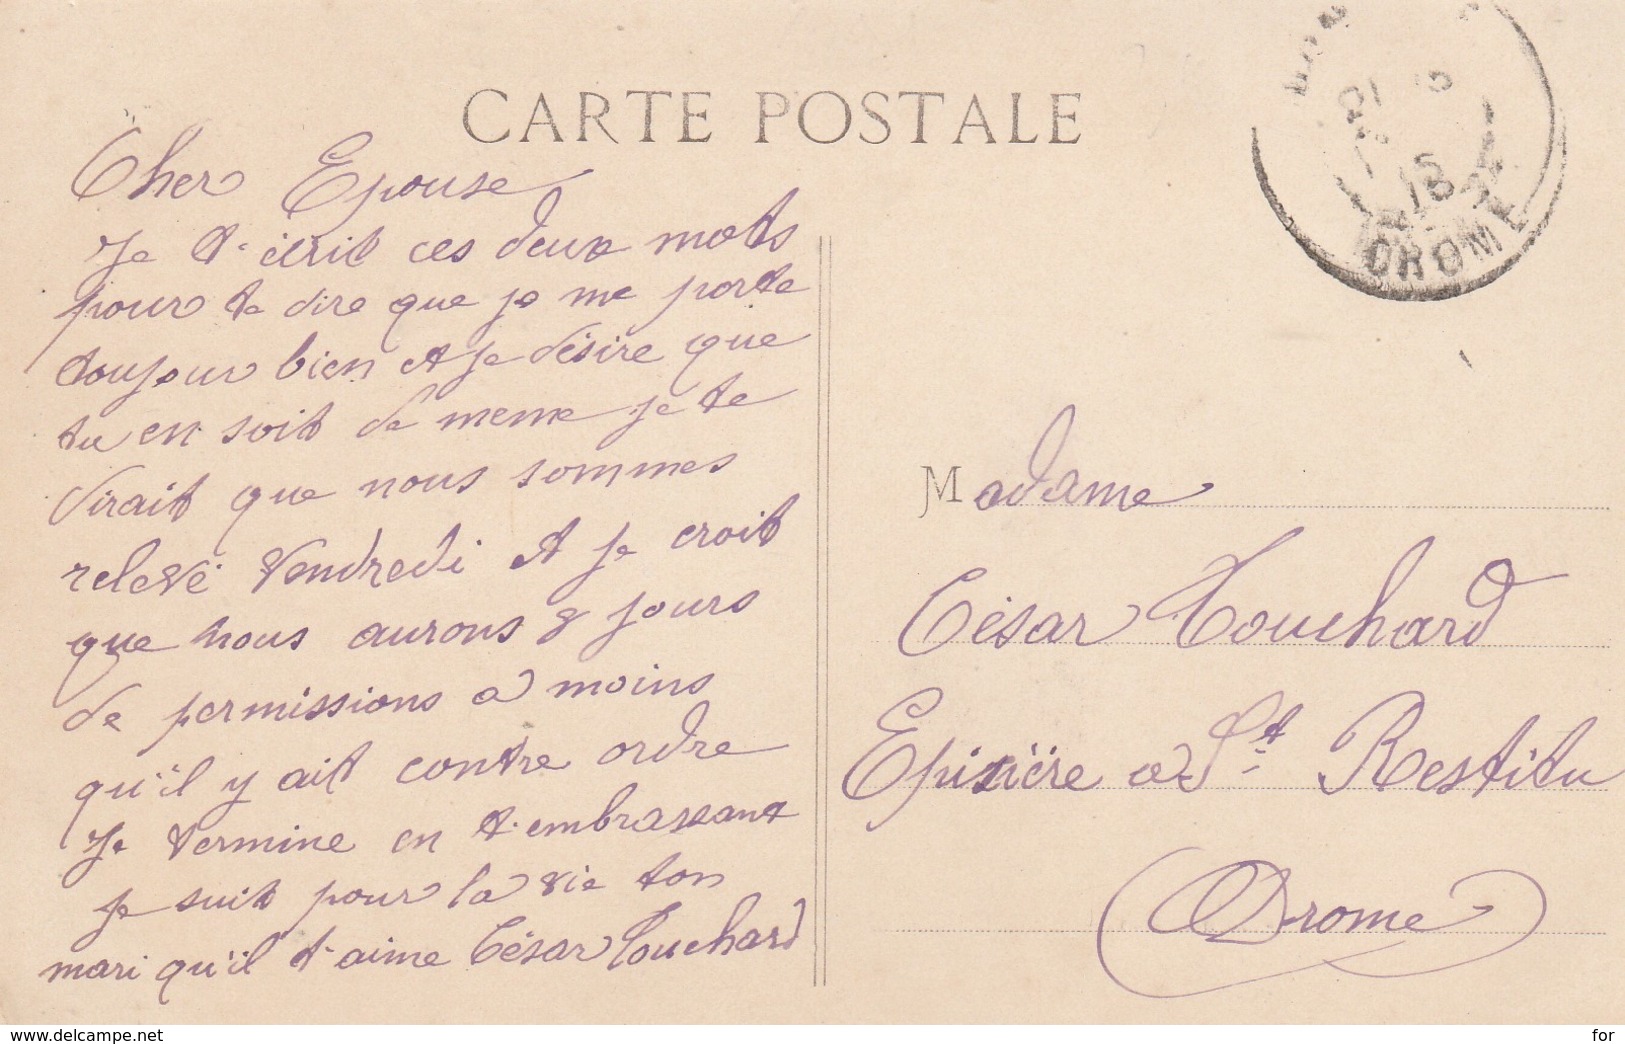 CARTE POSTALE
Cher Epouse
Je t'écrit ces deux mots
pour te dire que je me porte
toujour bien et je désire que
tu en soit de meme je te
dirait que nous sommes
relevé Vendredi et je croit
que nous aurons 8 jours
de permissions a moins
qu'il y ait contre ordre
Je termine en t'embrassant
je suit pour la vie ton
mari qu'il t'aime César Touchard
DROME
Madame
César Touchard
Epicière a St Restitu
Drome
www.delcampe.net
for